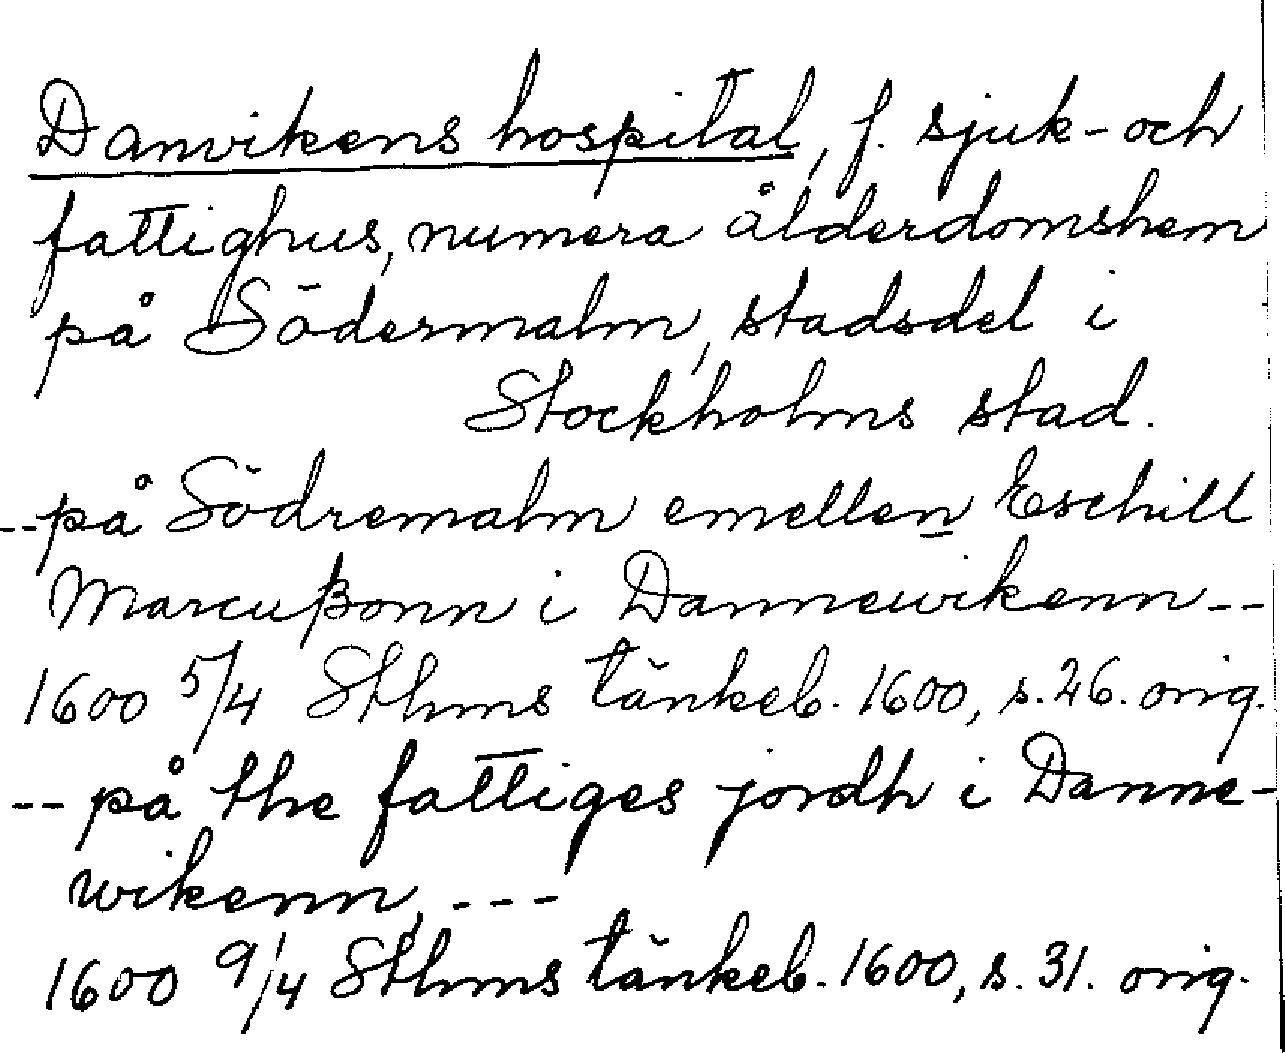 Danvikens hospital, f. sjuk- och
fattighus, numera ålderdomshem
på Södermalm, stadsdel i
Stockholms stad.
--på Södremalm emellen Eschill
Marcußonn i Dannewikenn--
1600 5/4 Sthms tänkeb. 1600, s. 26. orig.
--på the fattiges jordh i Danne-
wikenn, ---
1600 9/4 Sthms tänkeb. 1600, s. 31. orig.